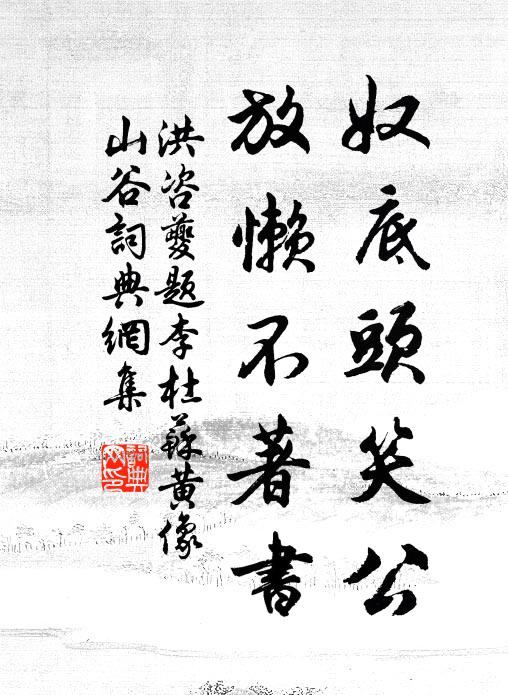 奴底頭笑公
放懶不著書
洪咨夔題李杜蘇黃像
山谷詞典網集
詞典网印